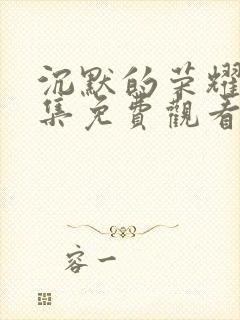 沉默的荣耀
集免費觀看
容一